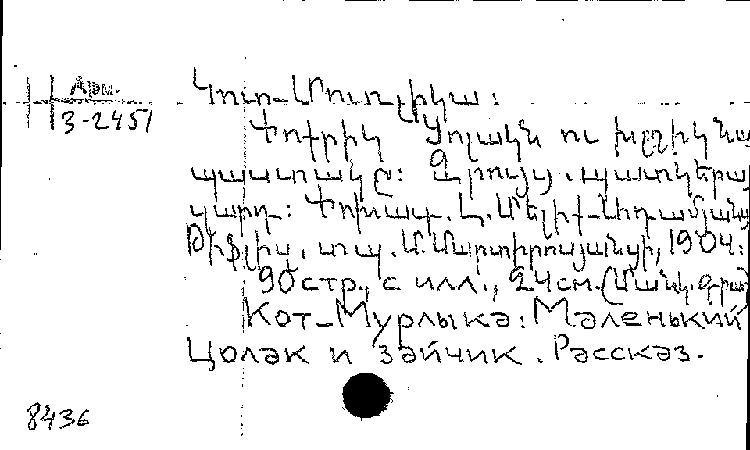 Арм.
3-2451
Կոտ-Մուռլիկա:
Փոքրիկ Ցոլակն ու խլզիկնա
պաստակը: Զրույց. պատկերա
զարդ: Փոխադր. Հ. Մելիք-
Թիֆլիս, տպ. Մ. Մարտիրոսյանցի, 1904:
90 стр., с илл., 24 см. (Մանկ. գրադ
Кот-Мурлыка: Маленький
Цолак и зайчик. Рассказ.
8436